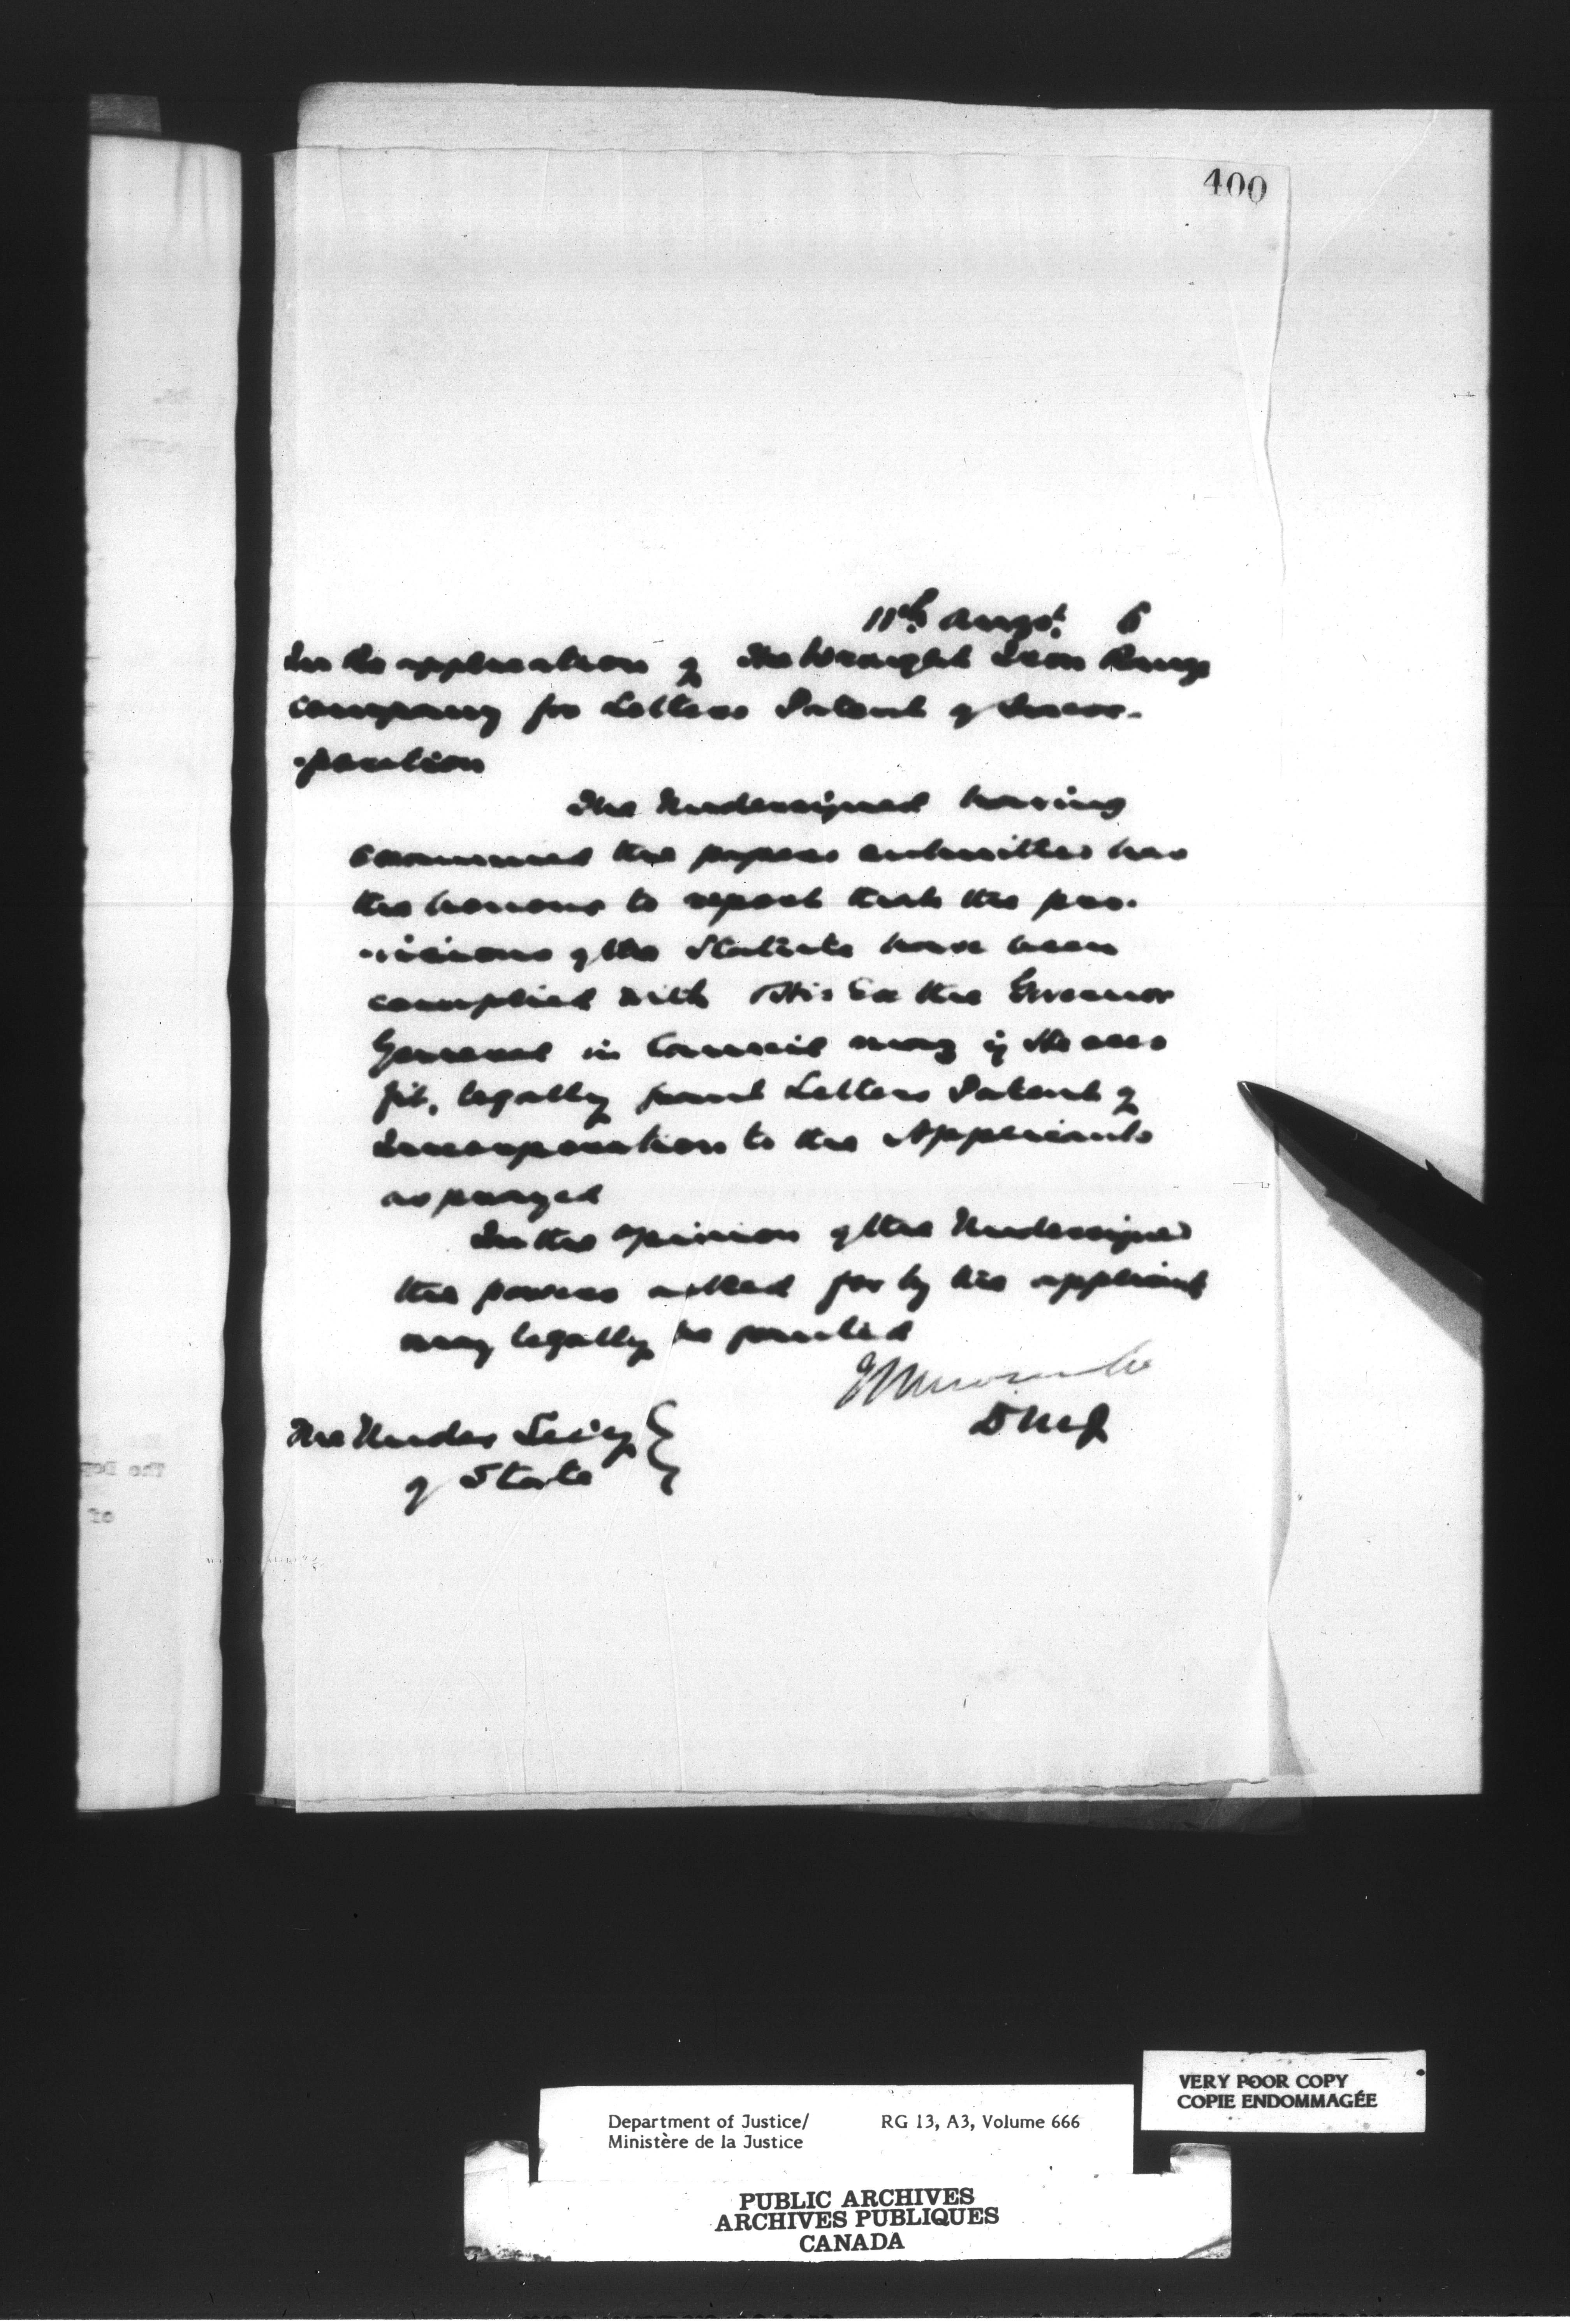 400
11th Augst. 6
In re application of The Wrought Iron Range
Company for Letters Patent of Incor-
-poration
The Undersigned having
examined the papers submitted has
the honour to report that the pro-
-visions of the Statute have been
complied with His Ex the Governor
General in Council may if He sees
fit, legally grant Letters Patent of
Incorporation to the Applicants
as prayed
In the opinion of the Undersigned
the powers asked for by the applicant
may legally be granted
D M of J
The Under Secy
of State
VERY POOR COPY
COPIE ENDOMMAGÉE
Department of Justice/ RG 13, A3, Volume 666
Ministère de la Justice
PUBLIC ARCHIVES
ARCHIVES PUBLIQUES
CANADA